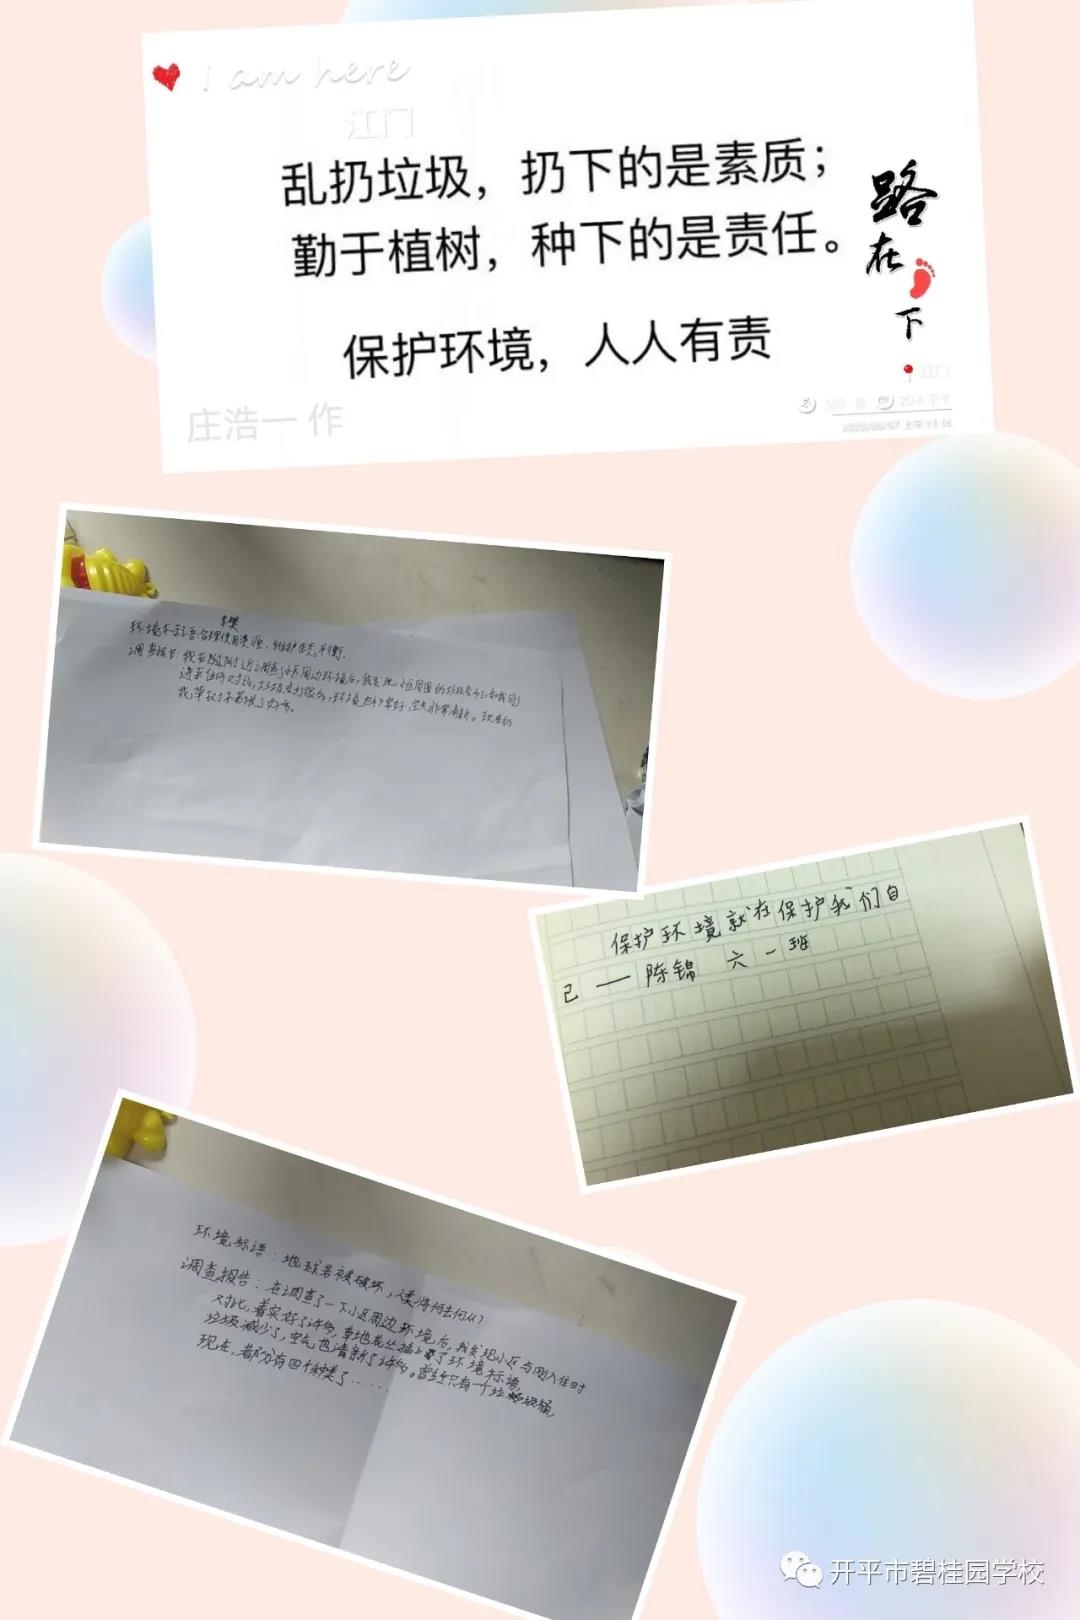 I am here
江门
乱扔垃圾，扔下的是素质；
勤于植树，种下的是责任。
保护环境，人人有责
路
在
下
江门
庄浩一 作
2020/06/07 上午 11:16
环境标示语:合理使用资源，维护生态平衡.
调查报告:我在附近调查了小区周边环境后,我发现,小区周围的垃圾变少了,和我刚
进来住时对比,垃圾变少很多,环境也非常好,空气非常清新。现在的
花草树木都很了好多。
保护环境就在保护我们自
己——陈锦 六一班
环境标语：地球若被破坏，人类将何去何从?
调查报告：在调查了一下小区周边环境后，我发现小区与刚入住时
对比，着实好了许多，草地花丛插上了环境标语，
垃圾减少了，空气也清新了许多。曾经只有一个垃圾桶，
现在，都分有四个种类了......
开平市碧桂园学校